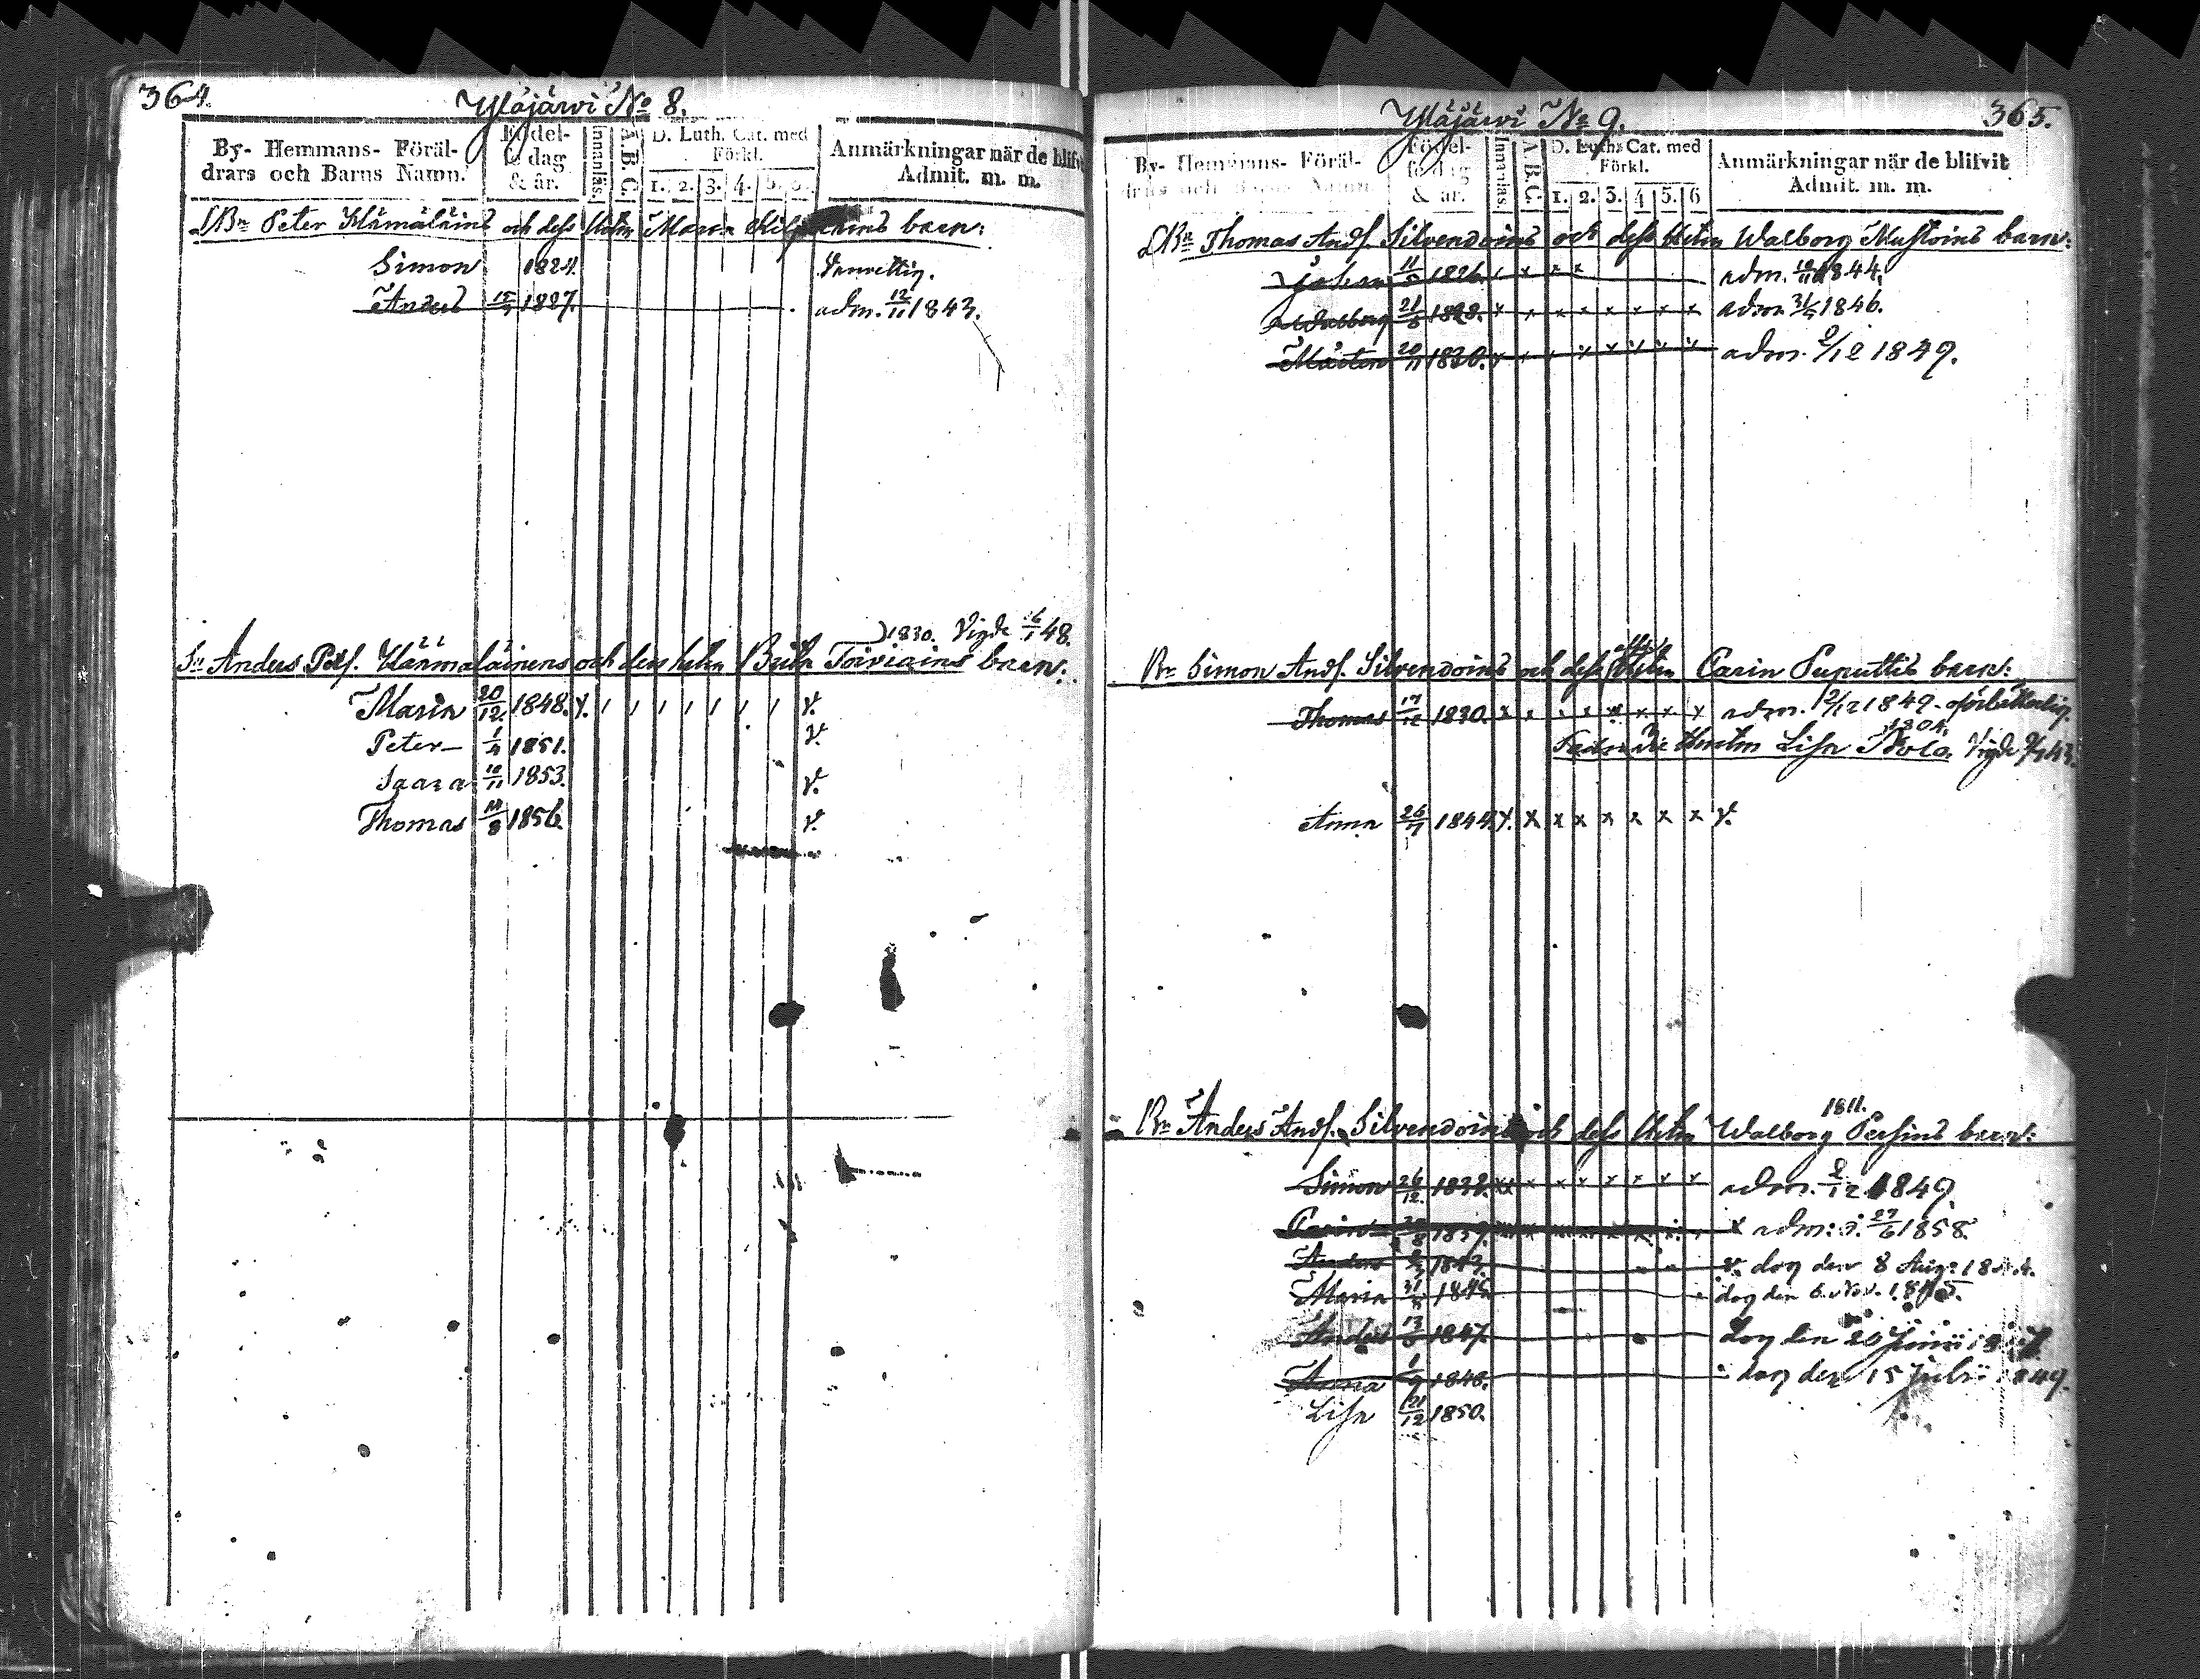 364.
Yläjärvi No 8.
By- Hemmans- Föräl-
drars och Barns Namn.
Födel-
se dag
& år.
Innanläs.
A.B.C.
D. Luth. Cat. med
Förkl.
1. 2. 3. 4. 5. 6.
Anmärkningar när de blifv
Admit. m. m.
Bn Peter Hämäläins och dess Hstru Maria barn:
Simon 1824.
Anders 15 1827. adm. 12/11 1843.
1830. Vigde 48.
Sn Anders Pets. Hämäläinens och dess hstru Brita Toiviains barn:
Maria 20/12 1848. v.
Peter 1/4 1851. v.
Saara 10/11 1853. v.
Thomas 14/8 1856. v.
365.
Yläjärvi No 9.
By- Hemmans- Föräl-
drars och Barns Namn.
Födel-
se dag
& år.
Innanläs.
A B.C.
D. Luths Cat. med
Förkl.
1. 2. 3. 4 5. 6
Anmärkningar när de blifvit
Admit. m. m.
Bn Thomas Ands. Silvendoins och dess Hstru Walborg Mustoins barn:
Johan 11 1826. adm. 1844.
Walborg 21/8 1828. adm 1846.
Mårten 20/11 1830. adm. 9/12 1849.
Bn Simon Ands. Silvendoins och dess Hstru Carin Puputtis barn:
Thomas 17/12 1830. adm. 9/12 1849.
1804.
Hustru Lisa Vigde
Anna 26 1844. v.
1811.
Bn Anders Ands. Silvendoins och dess Hstru Walborg Persins barn:
Simon 26/12. 1832. adm. 9/12 1849.
Carin 1837. x adm: d. 27/6 1858.
Anders 1843. dog den 8 Aug: 18
Maria 31 1845 dog den 6 Nov. 1845.
Anders 13 1847. dog den 20 Junii
Anna 1/9 1848. dog den 15 Julii 1849.
Lisa 21/12 1850.